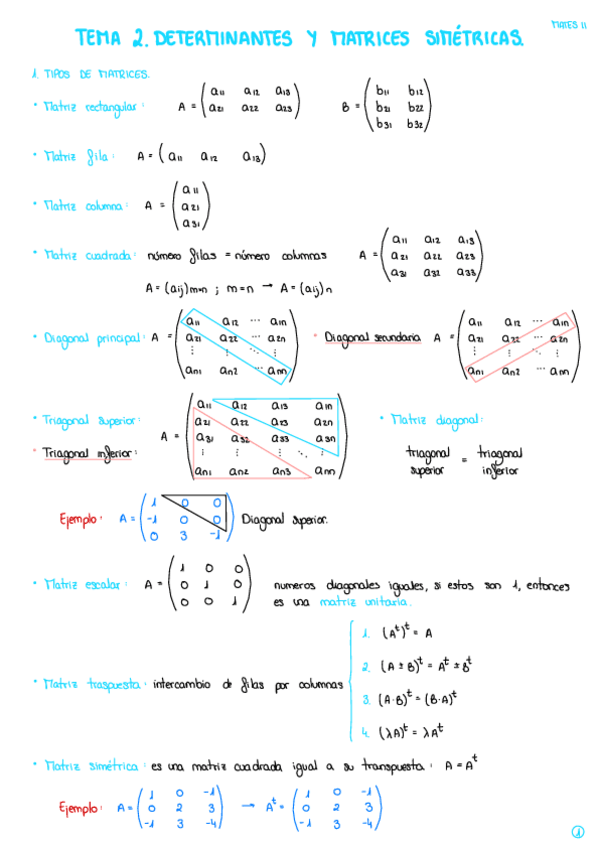 MATES II
TEMA 2. DETERMINANTES Y MATRICES SIMÉTRICAS.
1. TIPOS DE MATRICES.
• Matriz rectangular: A = ( a11 a12 a13
a21 a22 a23 ) B = ( b11 b12
b21 b22
b31 b32 )
• Matriz fila: A = ( a11 a12 a13 )
• Matriz columna: A = ( a11
a21
a31 )
• Matriz cuadrada: número filas = número columnas A = ( a11 a12 a13
a21 a22 a23
a31 a32 a33 )
A = (aij)m×n ; m=n → A = (aij)n
• Diagonal principal: A = ( a11 a12 ... a1n
a21 a22 ... a2n
⋮ ⋮ ⋱ ⋮
an1 an2 ... ann )
• Diagonal secundaria A = ( a11 a12 ... a1n
a21 a22 ... a2n
⋮ ⋮ ⋮
an1 an2 ... ann )
• Triagonal superior:
• Triagonal inferior: A = ( a11 a12 a13 a1n
a21 a22 a23 a2n
a31 a32 a33 a3n
⋮ ⋮ ⋮ ⋱ ⋮
an1 an2 an3 ann )
• Matriz diagonal:
triagonal superior = triagonal inferior
Ejemplo: A = ( 1 0 0
-1 0 0
0 3 -1 ) Diagonal superior.
• Matriz escalar: A = ( 1 0 0
0 1 0
0 0 1 ) numeros diagonales iguales, si estos son 1, entonces
es una matriz unitaria.
• Matriz traspuesta: intercambio de filas por columnas
1. (A^t)^t = A
2. (A ± B)^t = A^t ± B^t
3. (A·B)^t = (B·A)^t
4. (λA)^t = λA^t
• Matriz simétrica: es una matriz cuadrada igual a su transpuesta: A = A^t
Ejemplo: A = ( 1 0 -1
0 2 3
-1 3 -4 ) → A^t = ( 1 0 -1
0 2 3
-1 3 -4 )
1